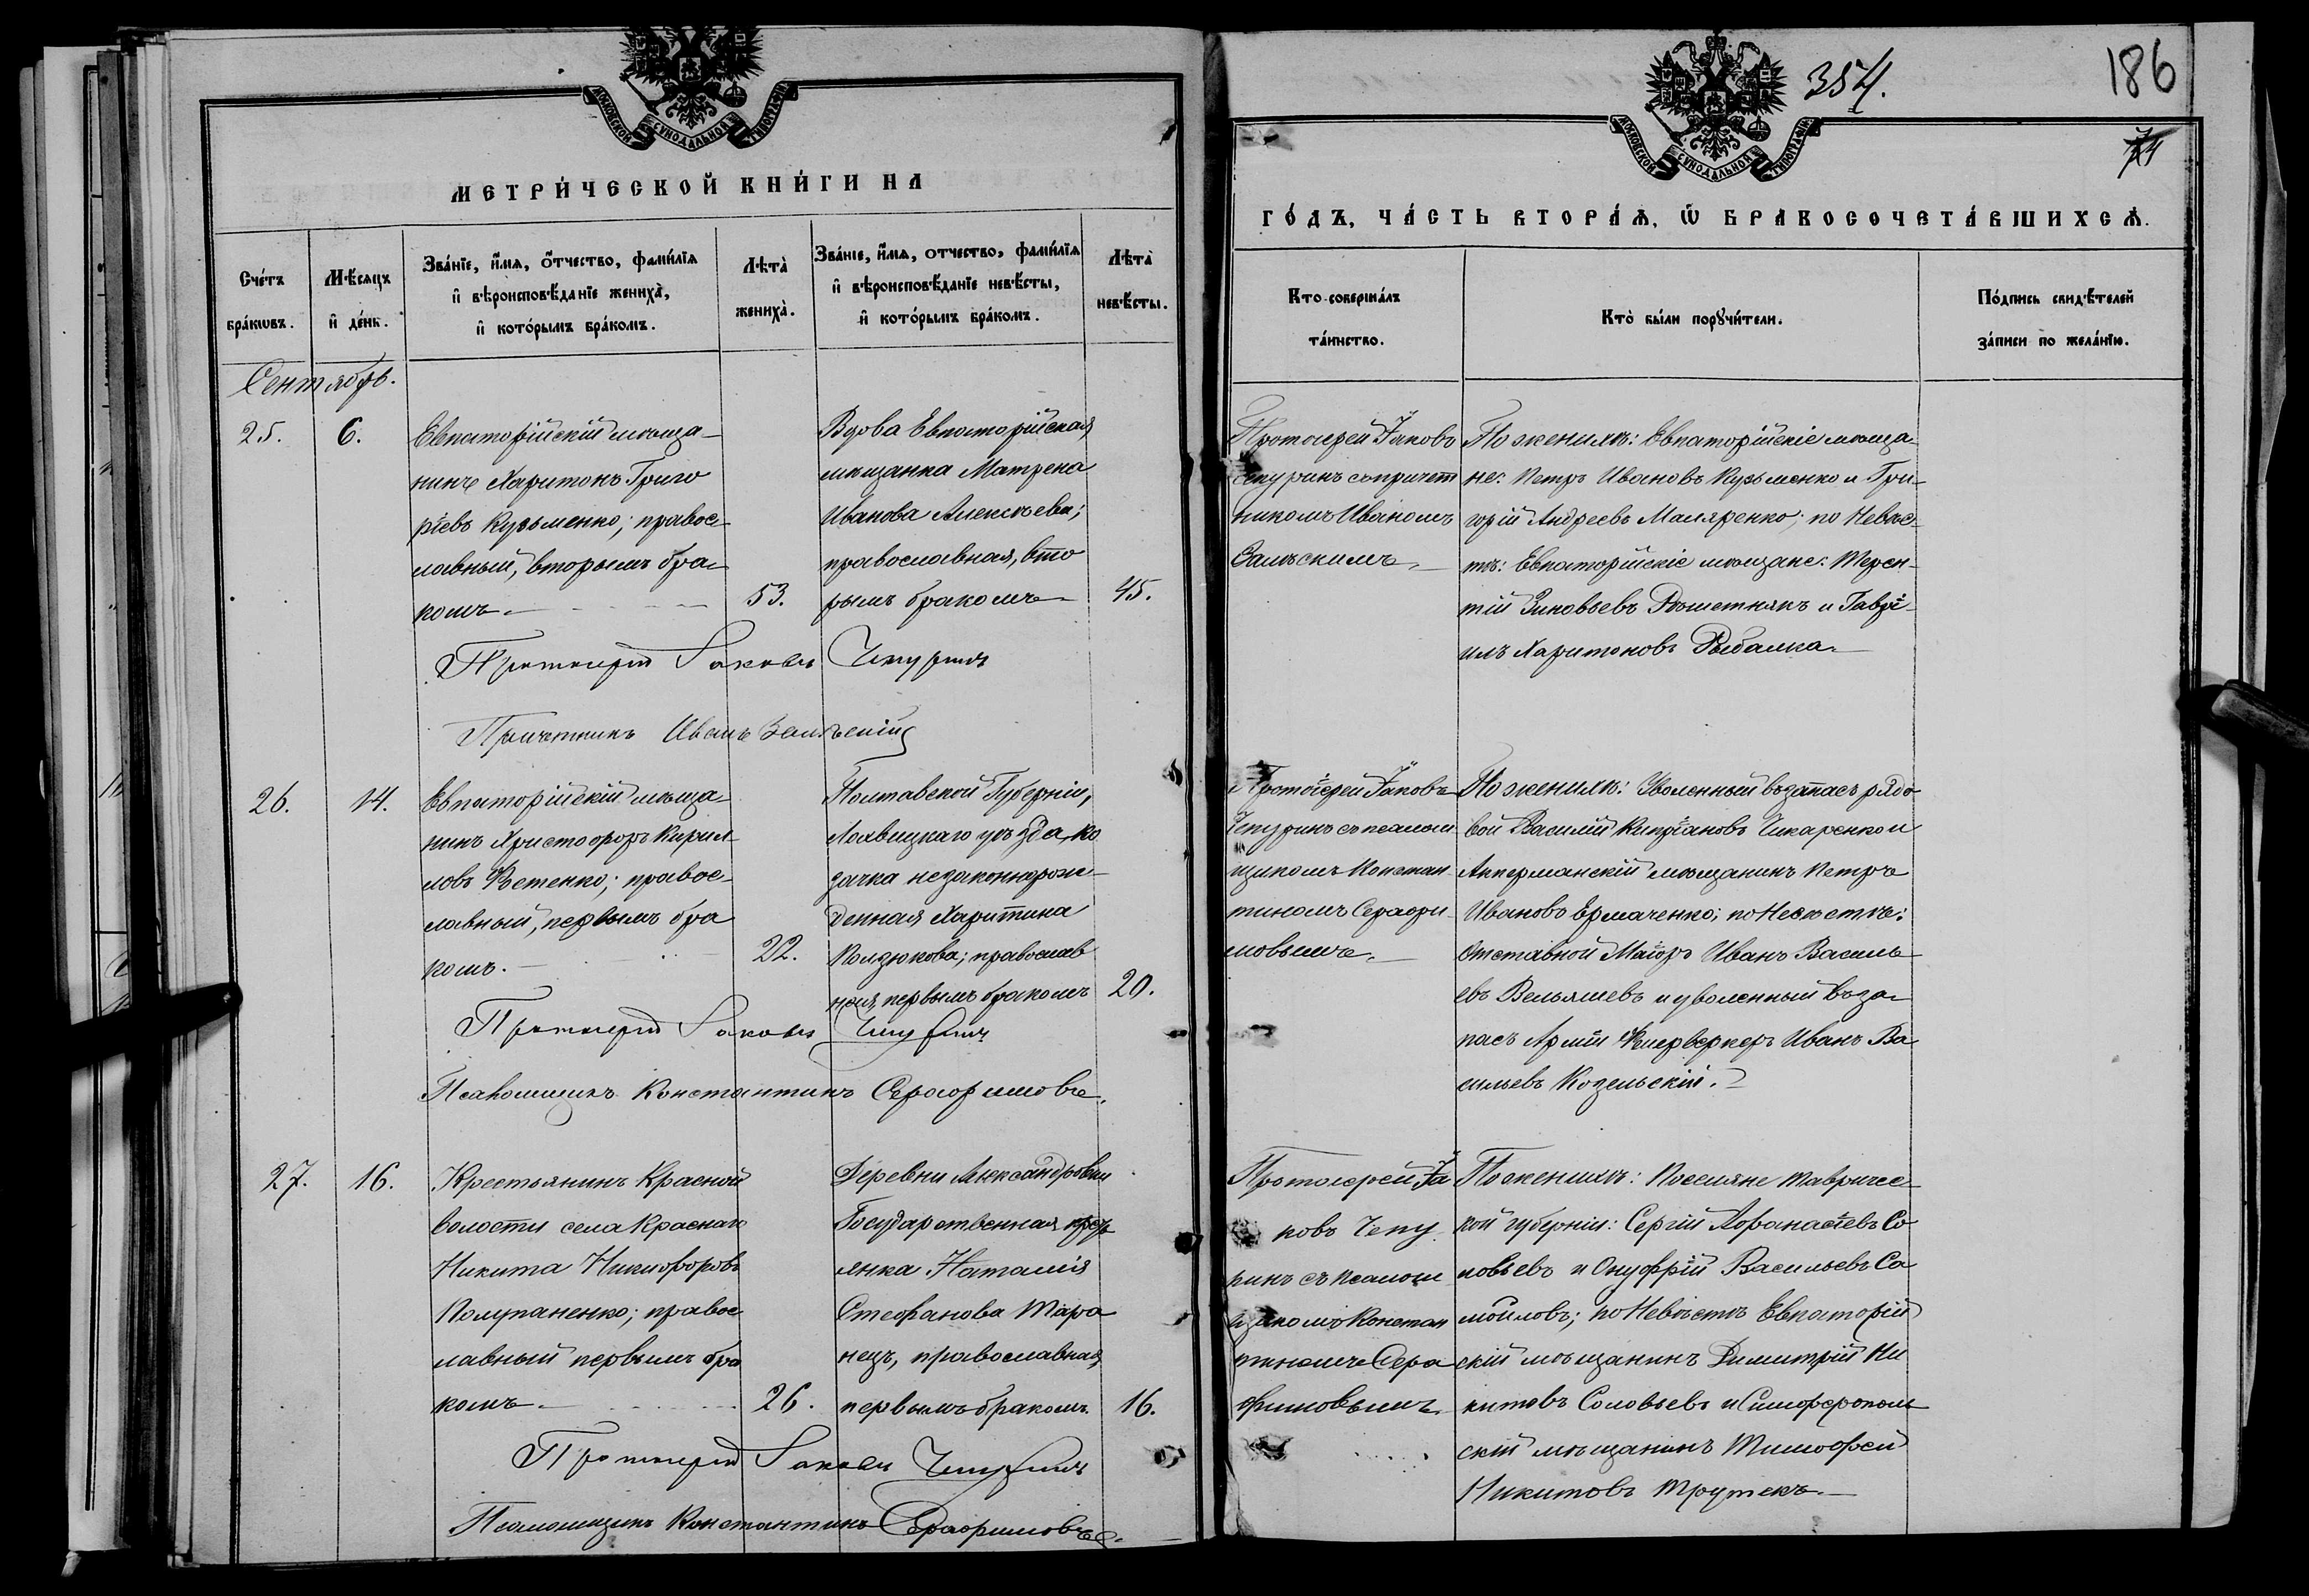 МОСКОВСКОЙ СѴНОДАЛЬНОЙ ТИПОГРАФІИ
МЕТРИ́ЧЕСКОЙ КНИ́ГИ НА
Сче́тъ бра́ковъ.
Мѣ́сяцъ и де́нь.
Зва́нїе, и́мя, о́тчество, фами́лїя и вѣроисповѣ́данїе жениха̀, и кото́рымъ бра́комъ.
Лѣта̀ жениха̀.
Зва́нїе, и́мя, отчество, фами́лїя и вѣроисповѣ́данїе невѣ́сты, и кото́рымъ бра́комъ.
Лѣта̀ невѣ́сты.
Сентябрь.
25.
6.
Евпаторійскій мѣща-
нинъ Харитонъ Григо
ріевъ Кузьменко; правос-
лавный, вторымъ бра-
комъ.
53.
Вдова Евпаторійская
мѣщанка Матрена
Иванова Алексѣева;
православная, вто
рымъ бракомъ
45.
Протоіерей Іаковъ Чепуринъ
Причетникъ Иванъ
26.
14.
Евпаторійскій мѣща-
нинъ Христофоръ Кирил-
ловъ правос-
лавный, первымъ бра
комъ.
22.
Полтавской Губерніи,
Лохвицкаго уѣзда, ко
зачка незаконнорож-
денная Харитина
православ
ная, первымъ бракомъ
20.
Протоіерей Іаковъ Чепуринъ
Псаломщикъ Константинъ Серафимовъ.
27.
16.
Крестьянинъ Красной
волости села Краснаго
Никита Никифоровъ
Полупаненко; правос
лавный первымъ бра
комъ.
26.
Деревни Александровки
Государственная крест
янка Наталія
Стефанова Тара
нецъ, православная,
первымъ бракомъ.
16.
Протоіерей Іаковъ Чепуринъ
Псаломщикъ Константинъ Серафимовъ.
354.
186
МОСКОВСКОЙ СѴНОДАЛЬНОЙ ТИПОГРАФІИ
ГО́ДЪ, ЧА́СТЬ ВТОРА́Ѧ, Ѿ БРАКОСОЧЕТА́ВШИХСѦ.
Кто соверша́лъ та́инство.
Кто̀ бы́ли порꙋчи́тели.
По́дпись свидѣ́телей за́писи по жела́нїю.
Протоіерей Іаковъ
Чепуринъ съ причет
никомъ Иваномъ
По женихѣ: Евпаторійскіе мѣща-
не: Петръ Ивановъ Кузьменко и Гри-
горій Андреевъ Маляренко; по Невѣс-
тѣ: Евпаторійскіе мѣщане: Терен-
тій Зиновьевъ Рѣшетнякъ и Гаврі-
илъ Харитоновъ Рыбалка.
Протоіерей Іаковъ
Чепуринъ съ псалом
щикомъ Констан-
тиномъ Серафи-
мовымъ.
По женихѣ: Уволенный въ запасъ рядо
вой Василій Кипріановъ Чикаренко и
Аккерманскій мѣщанинъ Петръ
Ивановъ Ермаченко; по Невѣстѣ:
Отставной Маіоръ Иванъ Василь
евъ Вельяшевъ и уволенный въ за-
пасъ Арміи Фейерверкеръ Иванъ Ва
сильевъ Козельскій.
Протоіерей Іа
ковъ Чепу
ринъ съ псалом
щикомъ Констан
тиномъ Сера
фимовымъ.
По женихѣ: Поселяне Тавричес-
кой губерніи: Сергій Афанасіевъ Со
ловьевъ и Онуфрій Васильевъ Са
мойловъ; по Невѣстѣ Евпаторій
скій мѣщанинъ Димитрій Ни
китовъ Соловьевъ и Симферополь
скій мѣщанинъ Тимофей
Никитовъ